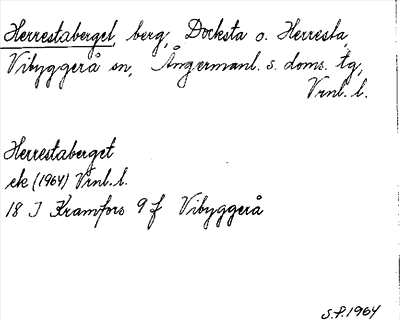 Herrestaberget, berg, Docksta o. Herresta,
Vibyggerå sn, Ångermanl. s. doms. tg,
Vrnl. l.
Herrestaberget
ek (1964) Vrnl. l.
18 J Kramfors 9 f Vibyggerå
S.F. 1964